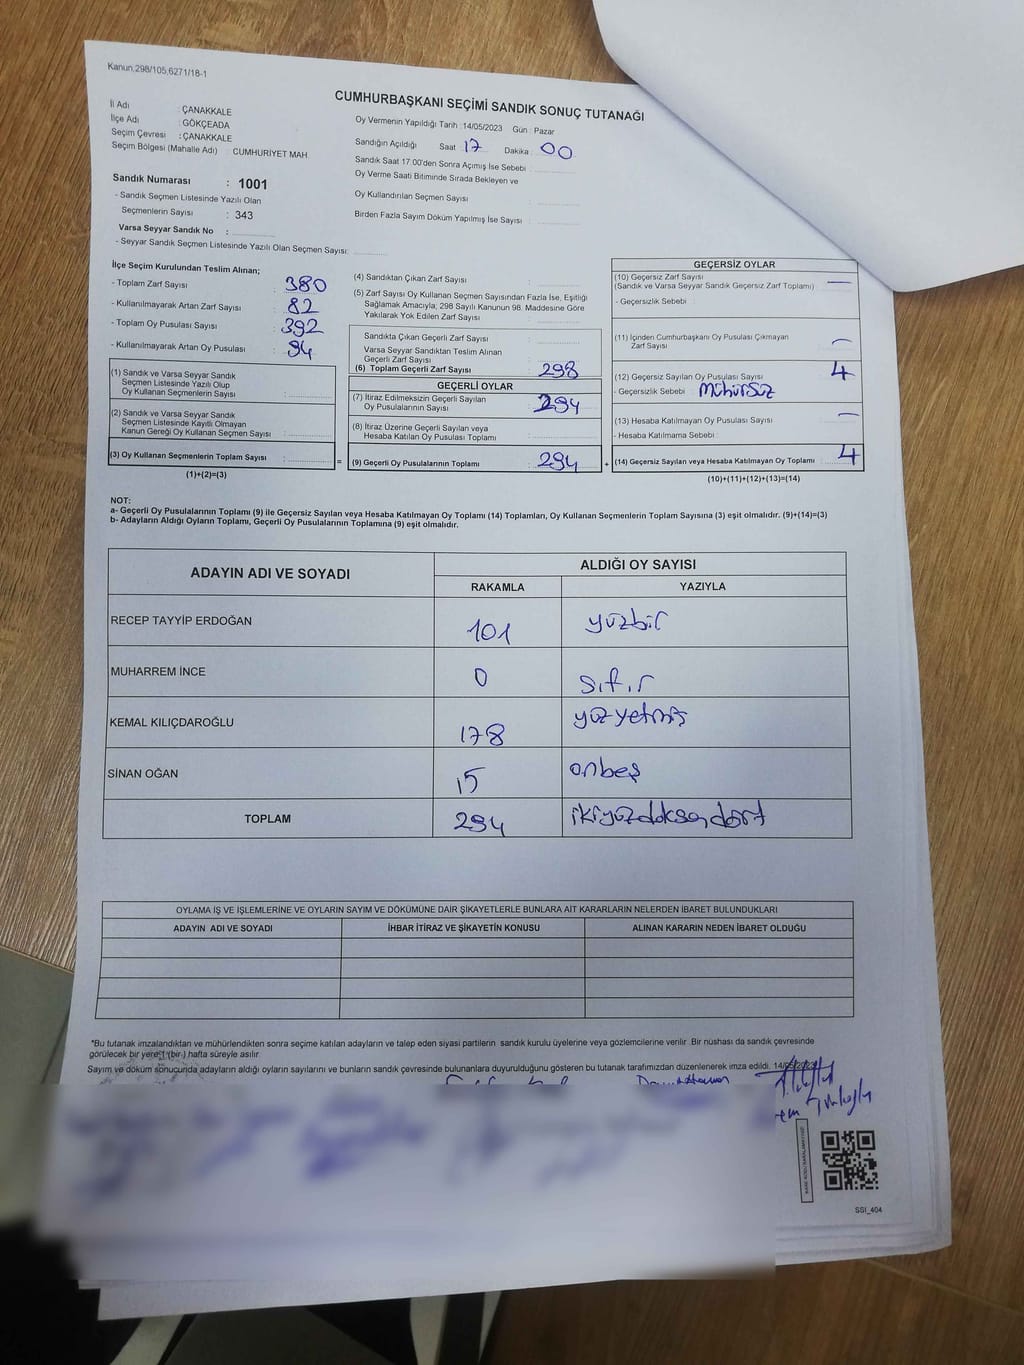 Kanun 298/105,6271/18-1
CUMHURBAŞKANI SEÇİMİ SANDIK SONUÇ TUTANAĞI
İl Adı : ÇANAKKALE
İlçe Adı : GÖKÇEADA
Seçim Çevresi : ÇANAKKALE
Seçim Bölgesi (Mahalle Adı) : CUMHURİYET MAH.
Oy Vermenin Yapıldığı Tarih :14/05/2023 Gün : Pazar
Sandığın Açıldığı Saat : 17 Dakika : 00
Sandık Saat 17.00'den Sonra Açımış İse Sebebi :
Oy Verme Saati Bitiminde Sırada Bekleyen ve
Oy Kullandırılan Seçmen Sayısı :
Birden Fazla Sayım Döküm Yapılmış İse Sayısı :
Sandık Numarası : 1001
- Sandık Seçmen Listesinde Yazılı Olan
Seçmenlerin Sayısı : 343
Varsa Seyyar Sandık No :
- Seyyar Sandık Seçmen Listesinde Yazılı Olan Seçmen Sayısı:
İlçe Seçim Kurulundan Teslim Alınan;
- Toplam Zarf Sayısı : 380
- Kullanılmayarak Artan Zarf Sayısı : 82
- Toplam Oy Pusulası Sayısı : 392
- Kullanılmayarak Artan Oy Pusulası : 94
(1) Sandık ve Varsa Seyyar Sandık
Seçmen Listesinde Yazılı Olup
Oy Kullanan Seçmenlerin Sayısı :
(2) Sandık ve Varsa Seyyar Sandık
Seçmen Listesinde Kayıtlı Olmayan
Kanun Gereği Oy Kullanan Seçmen Sayısı :
(3) Oy Kullanan Seçmenlerin Toplam Sayısı :
(1)+(2)=(3)
=
(4) Sandıktan Çıkan Zarf Sayısı :
(5) Zarf Sayısı Oy Kullanan Seçmen Sayısından Fazla İse, Eşitliği
Sağlamak Amacıyla; 298 Sayılı Kanunun 98. Maddesine Göre
Yakılarak Yok Edilen Zarf Sayısı :
Sandıkta Çıkan Geçerli Zarf Sayısı :
Varsa Seyyar Sandıktan Teslim Alınan
Geçerli Zarf Sayısı :
(6) Toplam Geçerli Zarf Sayısı : 298
GEÇERLİ OYLAR
(7) İtiraz Edilmeksizin Geçerli Sayılan
Oy Pusulalarının Sayısı : 294
(8) İtiraz Üzerine Geçerli Sayılan veya
Hesaba Katılan Oy Pusulası Toplamı :
(9) Geçerli Oy Pusulalarının Toplamı : 294
+
GEÇERSİZ OYLAR
(10) Geçersiz Zarf Sayısı
(Sandık ve Varsa Seyyar Sandık Geçersiz Zarf Toplamı) : —
- Geçersizlik Sebebi :
(11) İçinden Cumhurbaşkanı Oy Pusulası Çıkmayan
Zarf Sayısı : —
(12) Geçersiz Sayılan Oy Pusulası Sayısı : 4
- Geçersizlik Sebebi : Mühürsüz
(13) Hesaba Katılmayan Oy Pusulası Sayısı : —
- Hesaba Katılmama Sebebi :
(14) Geçersiz Sayılan veya Hesaba Katılmayan Oy Toplamı : 4
(10)+(11)+(12)+(13)=(14)
NOT:
a- Geçerli Oy Pusulalarının Toplamı (9) ile Geçersiz Sayılan veya Hesaba Katılmayan Oy Toplamı (14) Toplamları, Oy Kullanan Seçmenlerin Toplam Sayısına (3) eşit olmalıdır. (9)+(14)=(3)
b- Adayların Aldığı Oyların Toplamı, Geçerli Oy Pusulalarının Toplamına (9) eşit olmalıdır.
ADAYIN ADI VE SOYADI
ALDIĞI OY SAYISI
RAKAMLA YAZIYLA
RECEP TAYYİP ERDOĞAN 101 yüzbir
MUHARREM İNCE 0 sıfır
KEMAL KILIÇDAROĞLU 178 yüzyetmiş
SİNAN OĞAN 15 onbeş
TOPLAM 294 ikiyüzdoksandört
OYLAMA İŞ VE İŞLEMLERİNE VE OYLARIN SAYIM VE DÖKÜMÜNE DAİR ŞİKAYETLERLE BUNLARA AİT KARARLARIN NELERDEN İBARET BULUNDUKLARI
ADAYIN ADI VE SOYADI İHBAR İTİRAZ VE ŞİKAYETİN KONUSU ALINAN KARARIN NEDEN İBARET OLDUĞU
*Bu tutanak imzalandıktan ve mühürlendikten sonra seçime katılan adayların ve talep eden siyasi partilerin sandık kurulu üyelerine veya gözlemcilerine verilir. Bir nüshası da sandık çevresinde
görülecek bir yere 1 (bir ) hafta süreyle asılır.
Sayım ve döküm sonucunda adayların aldığı oyların sayılarını ve bunların sandık çevresinde bulunanlara duyurulduğunu gösteren bu tutanak tarafımızdan düzenlenerek imza edildi. 14/05/2023
SSI_404